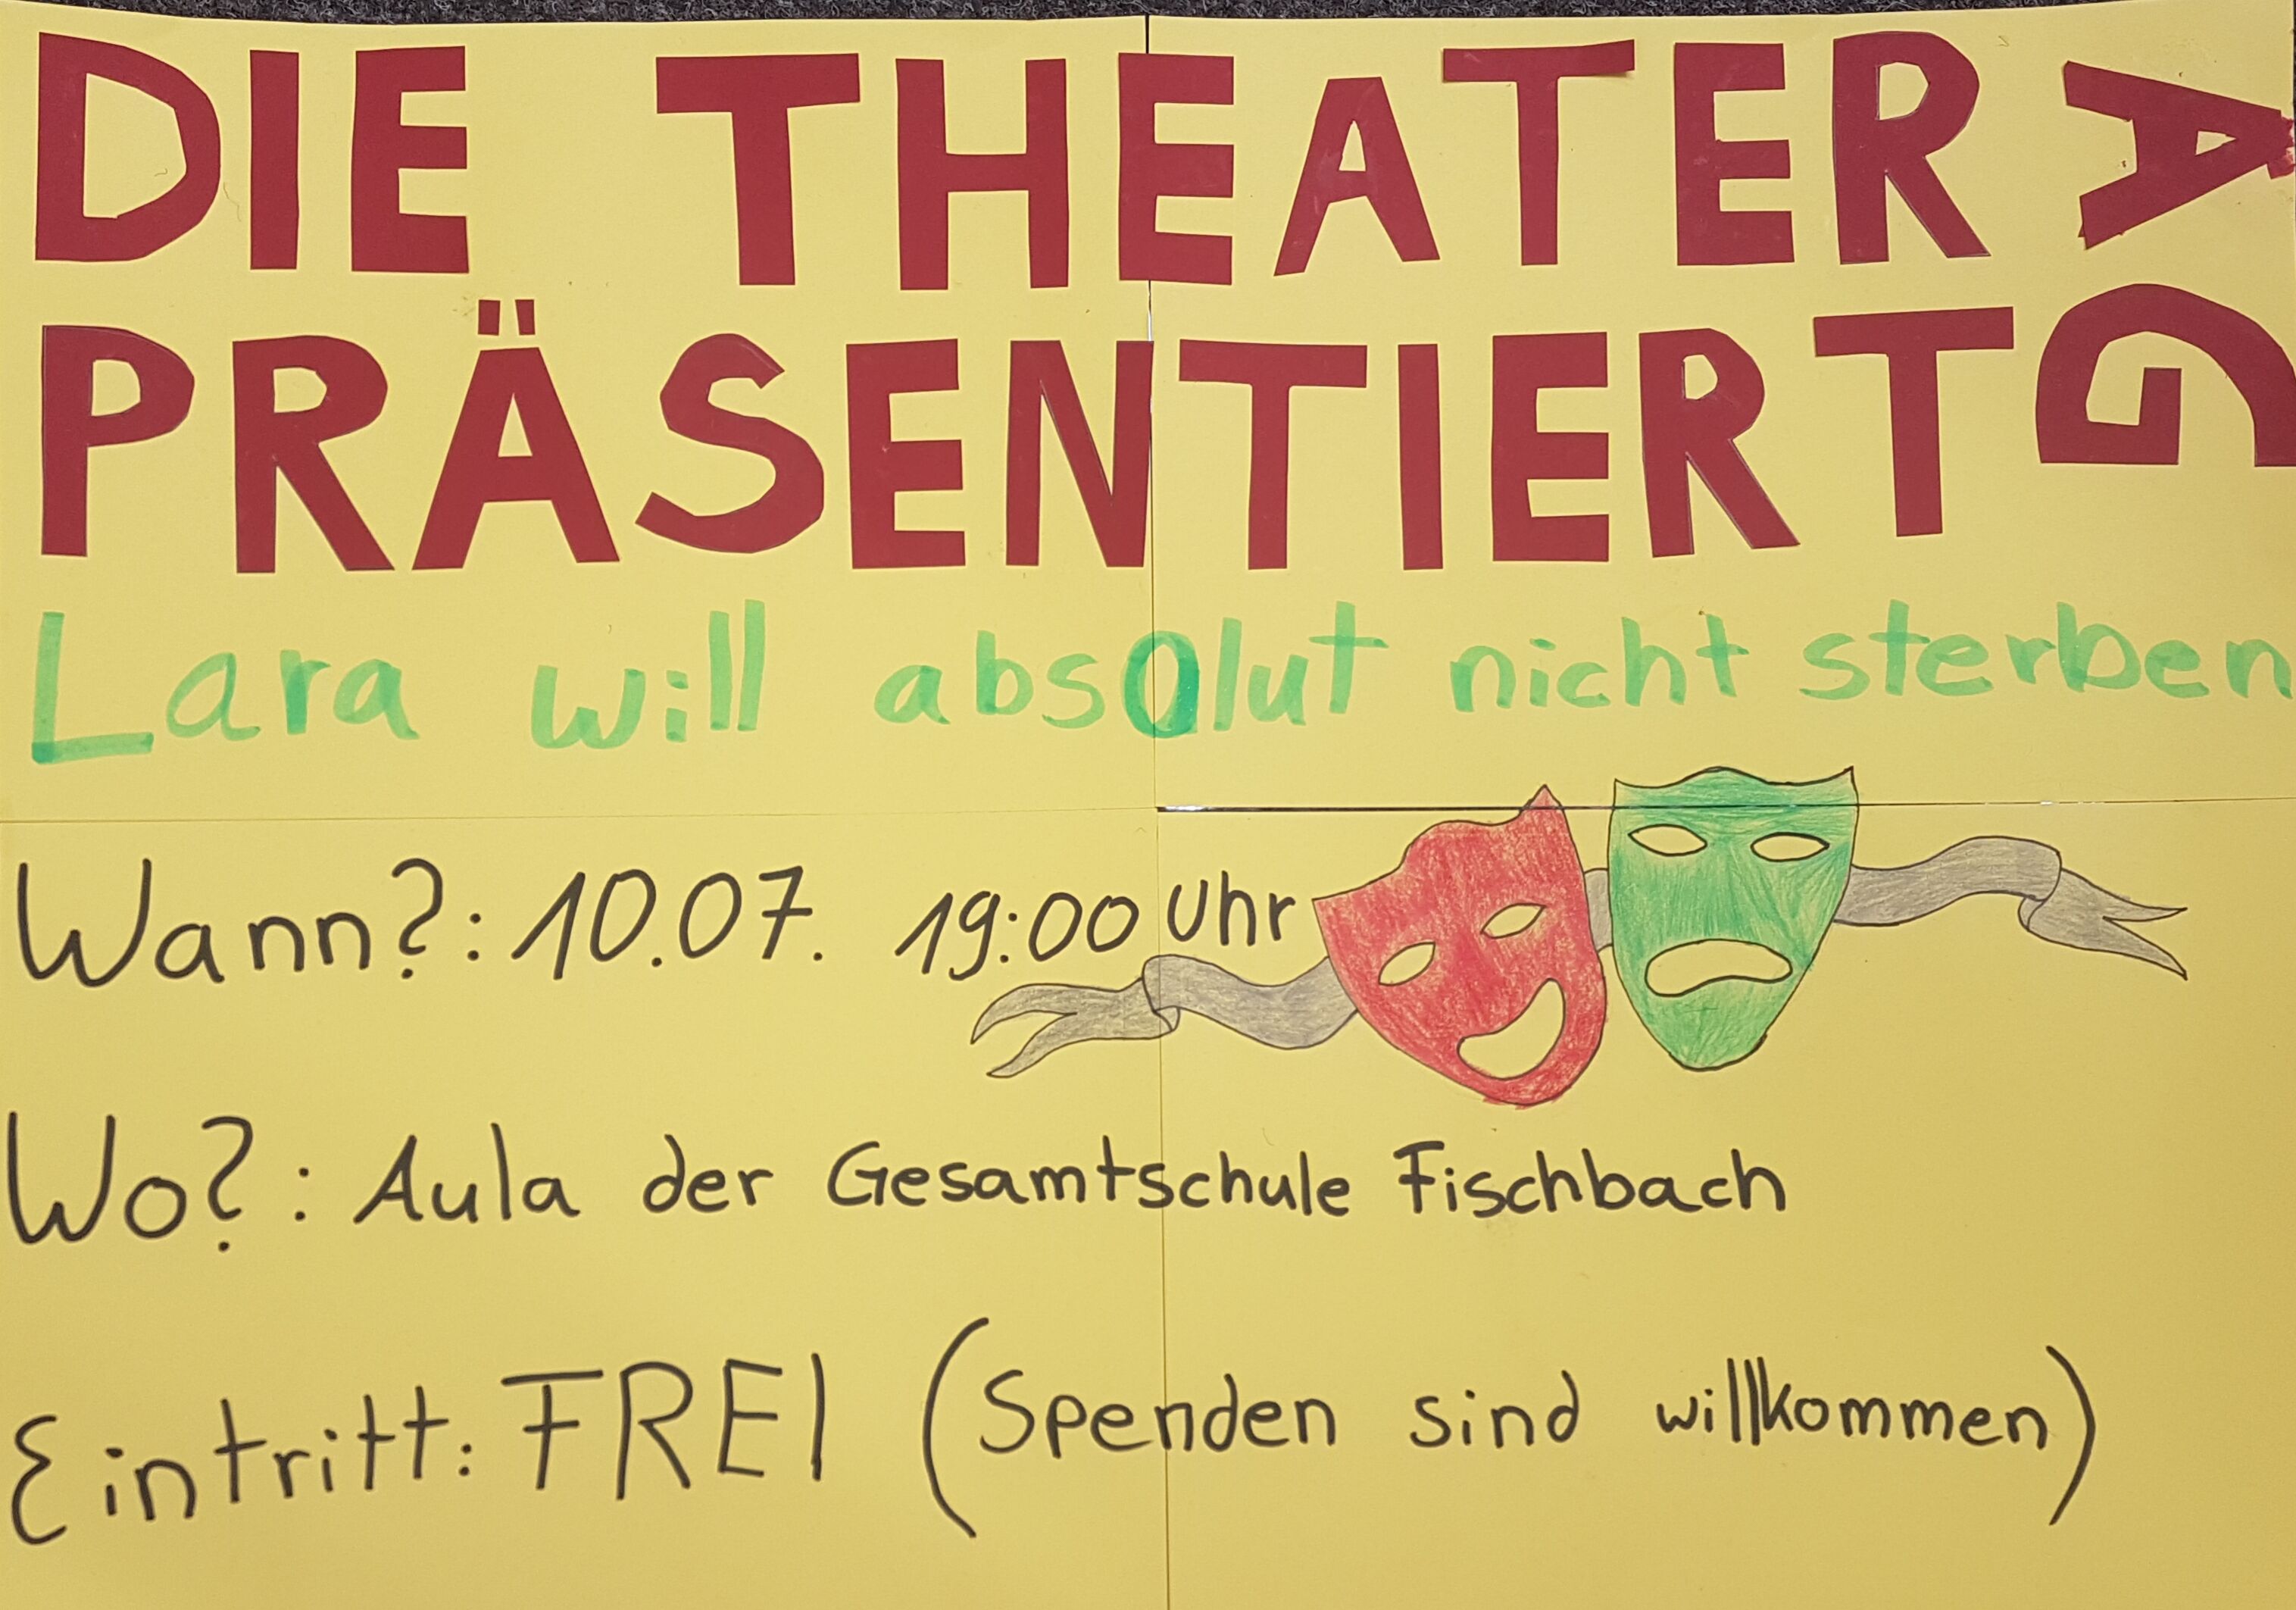 DIE THEATER AG
PRÄSENTIERT
Lara will absolut nicht sterben
Wann?: 10.07. 19:00 Uhr
Wo?: Aula der Gesamtschule Fischbach
Eintritt: FREI (Spenden sind willkommen)